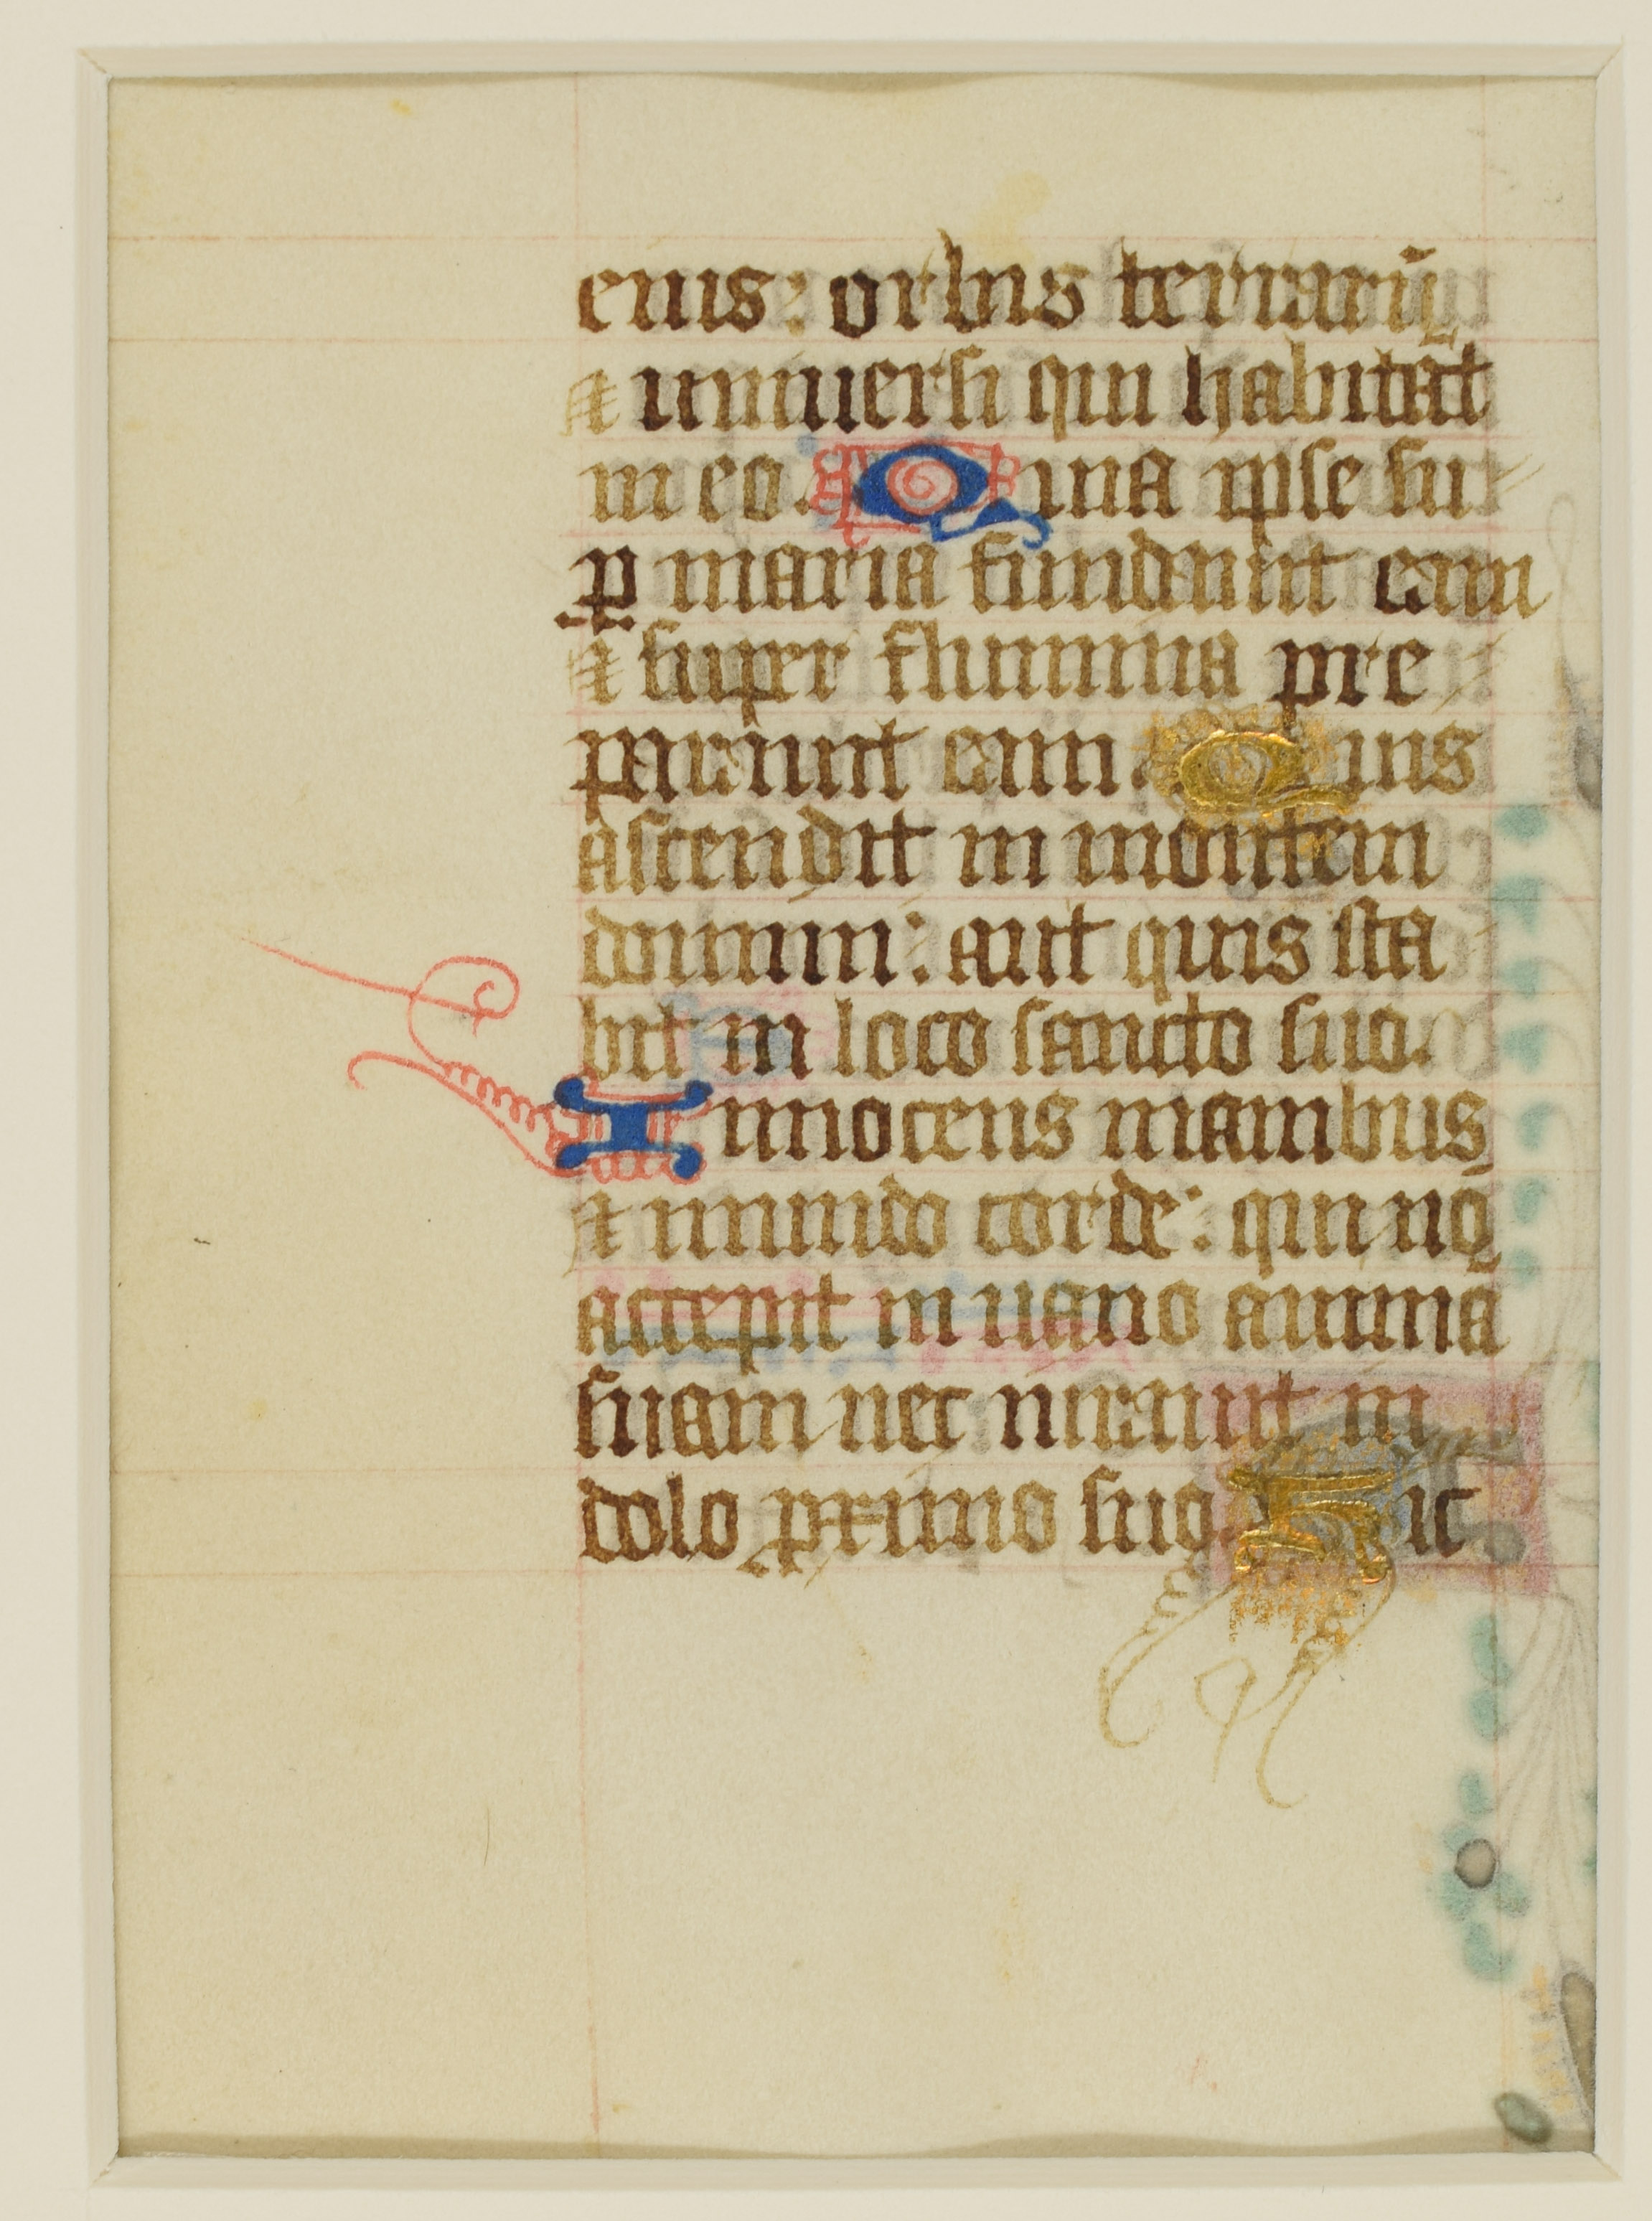 eius: orbis terrarū
⁊ uniuersi qui habitāt
in eo. Quia ipse su
ꝑ maria fundauit eam
⁊ super flumina pre
parauit eum. Quis
ascendit in montem
domini: aut quis sta
bit in loco sancto suo.
Innocens manibus
⁊ mundo corde: qui nō
accepit in uano animā
suam nec iurauit in
dolo ꝓximo suo. Hic